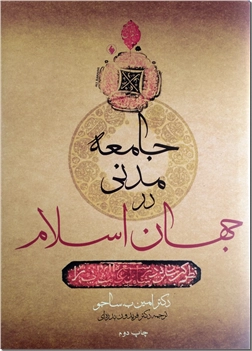 جامعه
مدنی
در
جهان اسلام
دکتر امین ب ساجو
ترجمه دکتر فریدون بدره‌ای
چاپ دوم